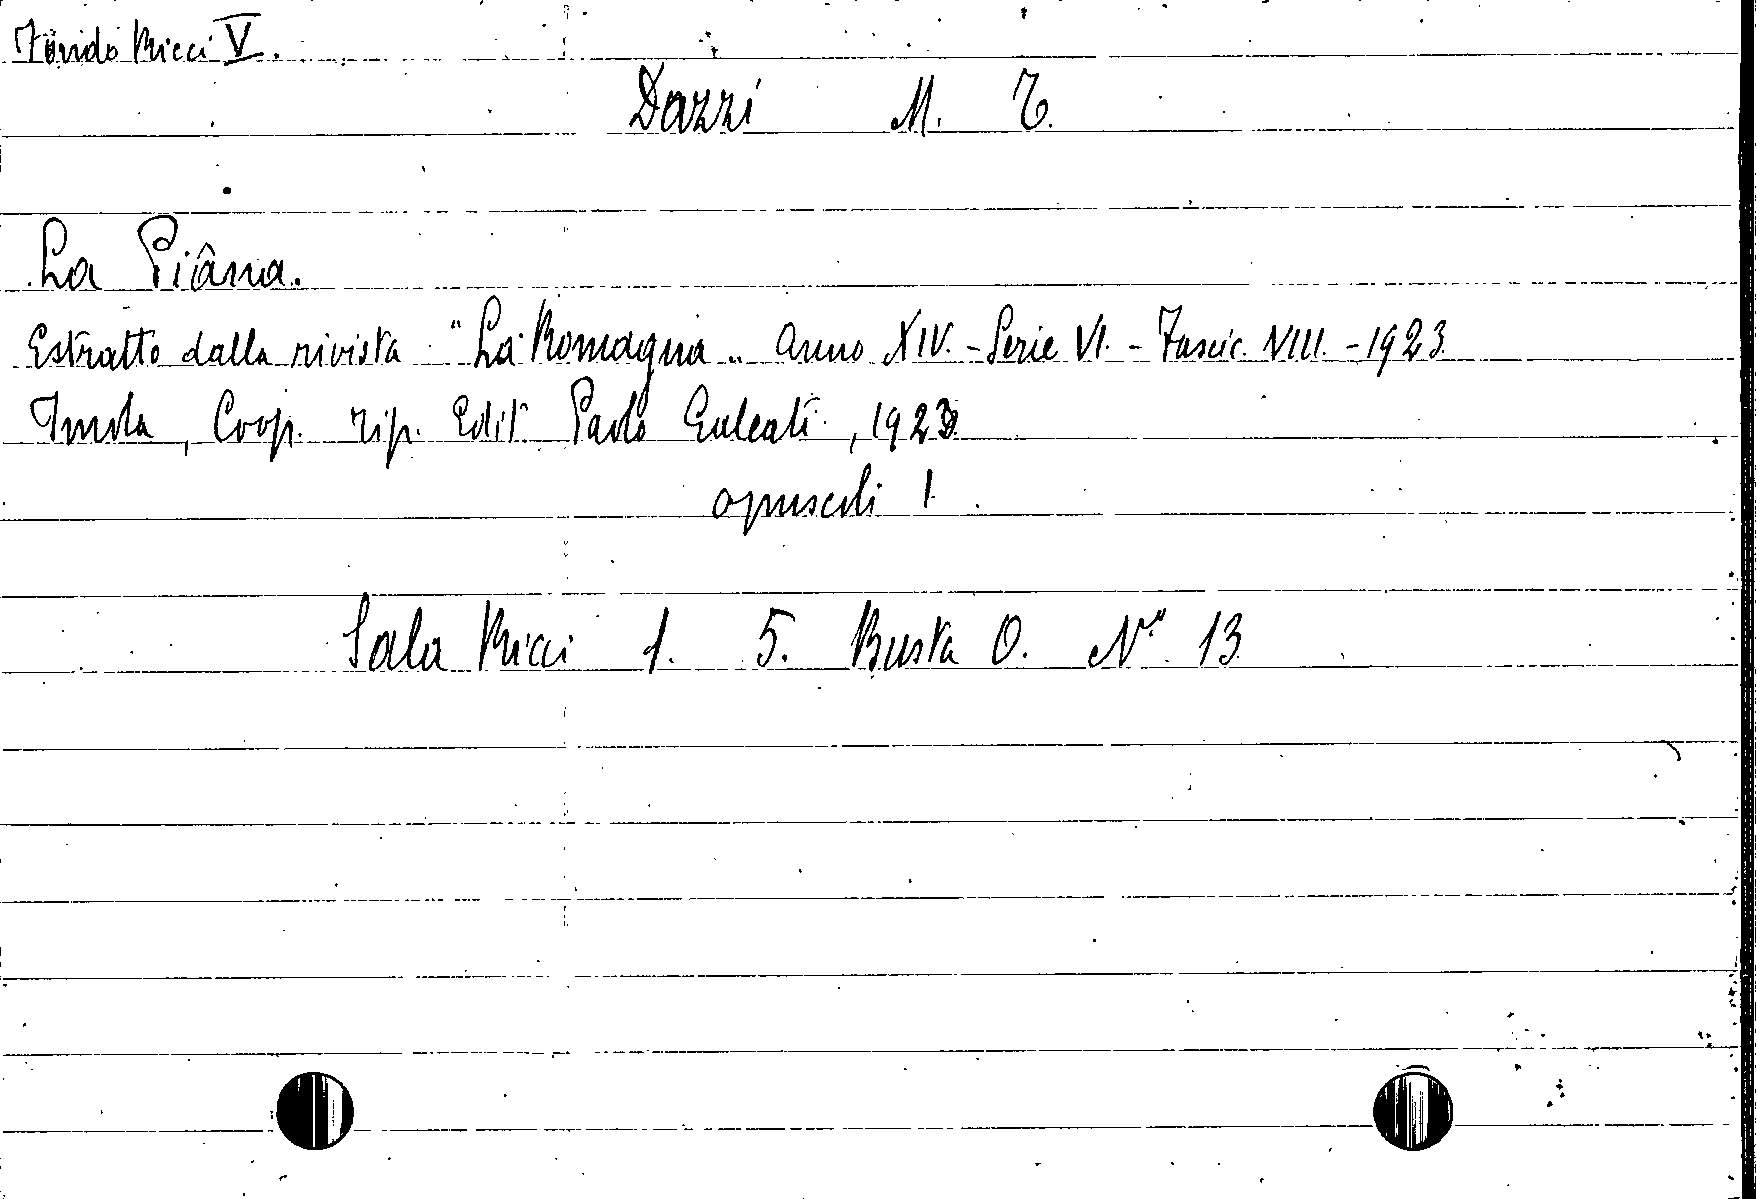 Fondo Ricci V.
Dazzi M. T.
La Piâna.
Estratto dalla rivista "La Romagna„ Anno XIV. - Serie VI. - Fascic. VIII. - 1923.
Imola, Coop. Tip. Edit. Paolo Galeati, 1923
opuscoli 1.
Sala Ricci 1. 5. Busta O. N.º 13